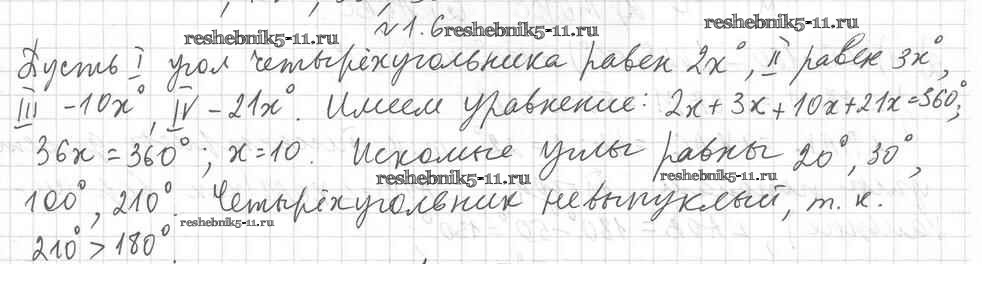 №1.6
reshebnik5-11.ru reshebnik5-11.ru reshebnik5-11.ru
Пусть I угол четырёхугольника равен 2x°, II равен 3x°,
III - 10x°, IV - 21x°. Имеем уравнение: 2x + 3x + 10x + 21x = 360°;
36x = 360°; x = 10. Искомые углы равны 20°, 30°,
reshebnik5-11.ru reshebnik5-11.ru
100°, 210°. Четырёхугольник невыпуклый, т. к.
reshebnik5-11.ru
210° > 180°.